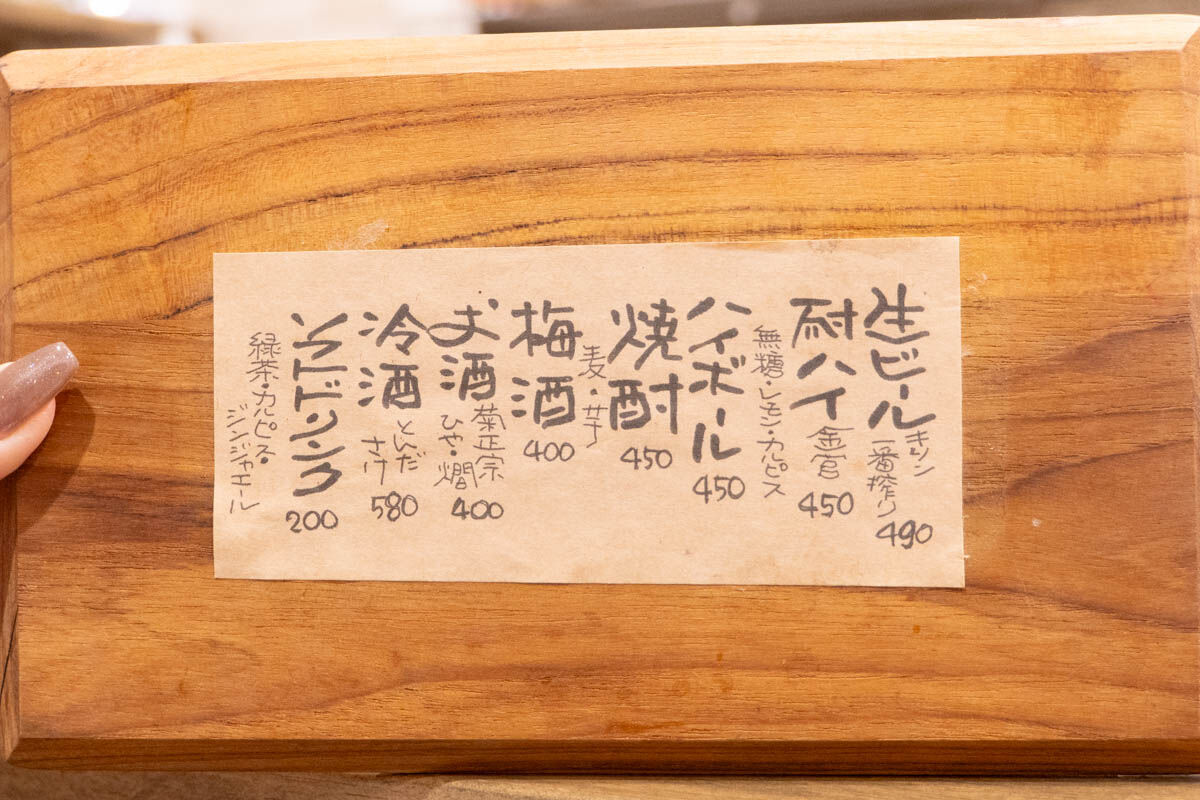 生ビール キリン一番搾り 490
耐ハイ 金宮 450
無糖・レモン・カルピス
ハイボール 450
焼酎 450
麦・芋
梅酒 400
お酒 菊正宗 ひや・燗 400
冷酒 とんださけ 580
ソフトドリンク 200
緑茶・カルピス・
ジンジャエール